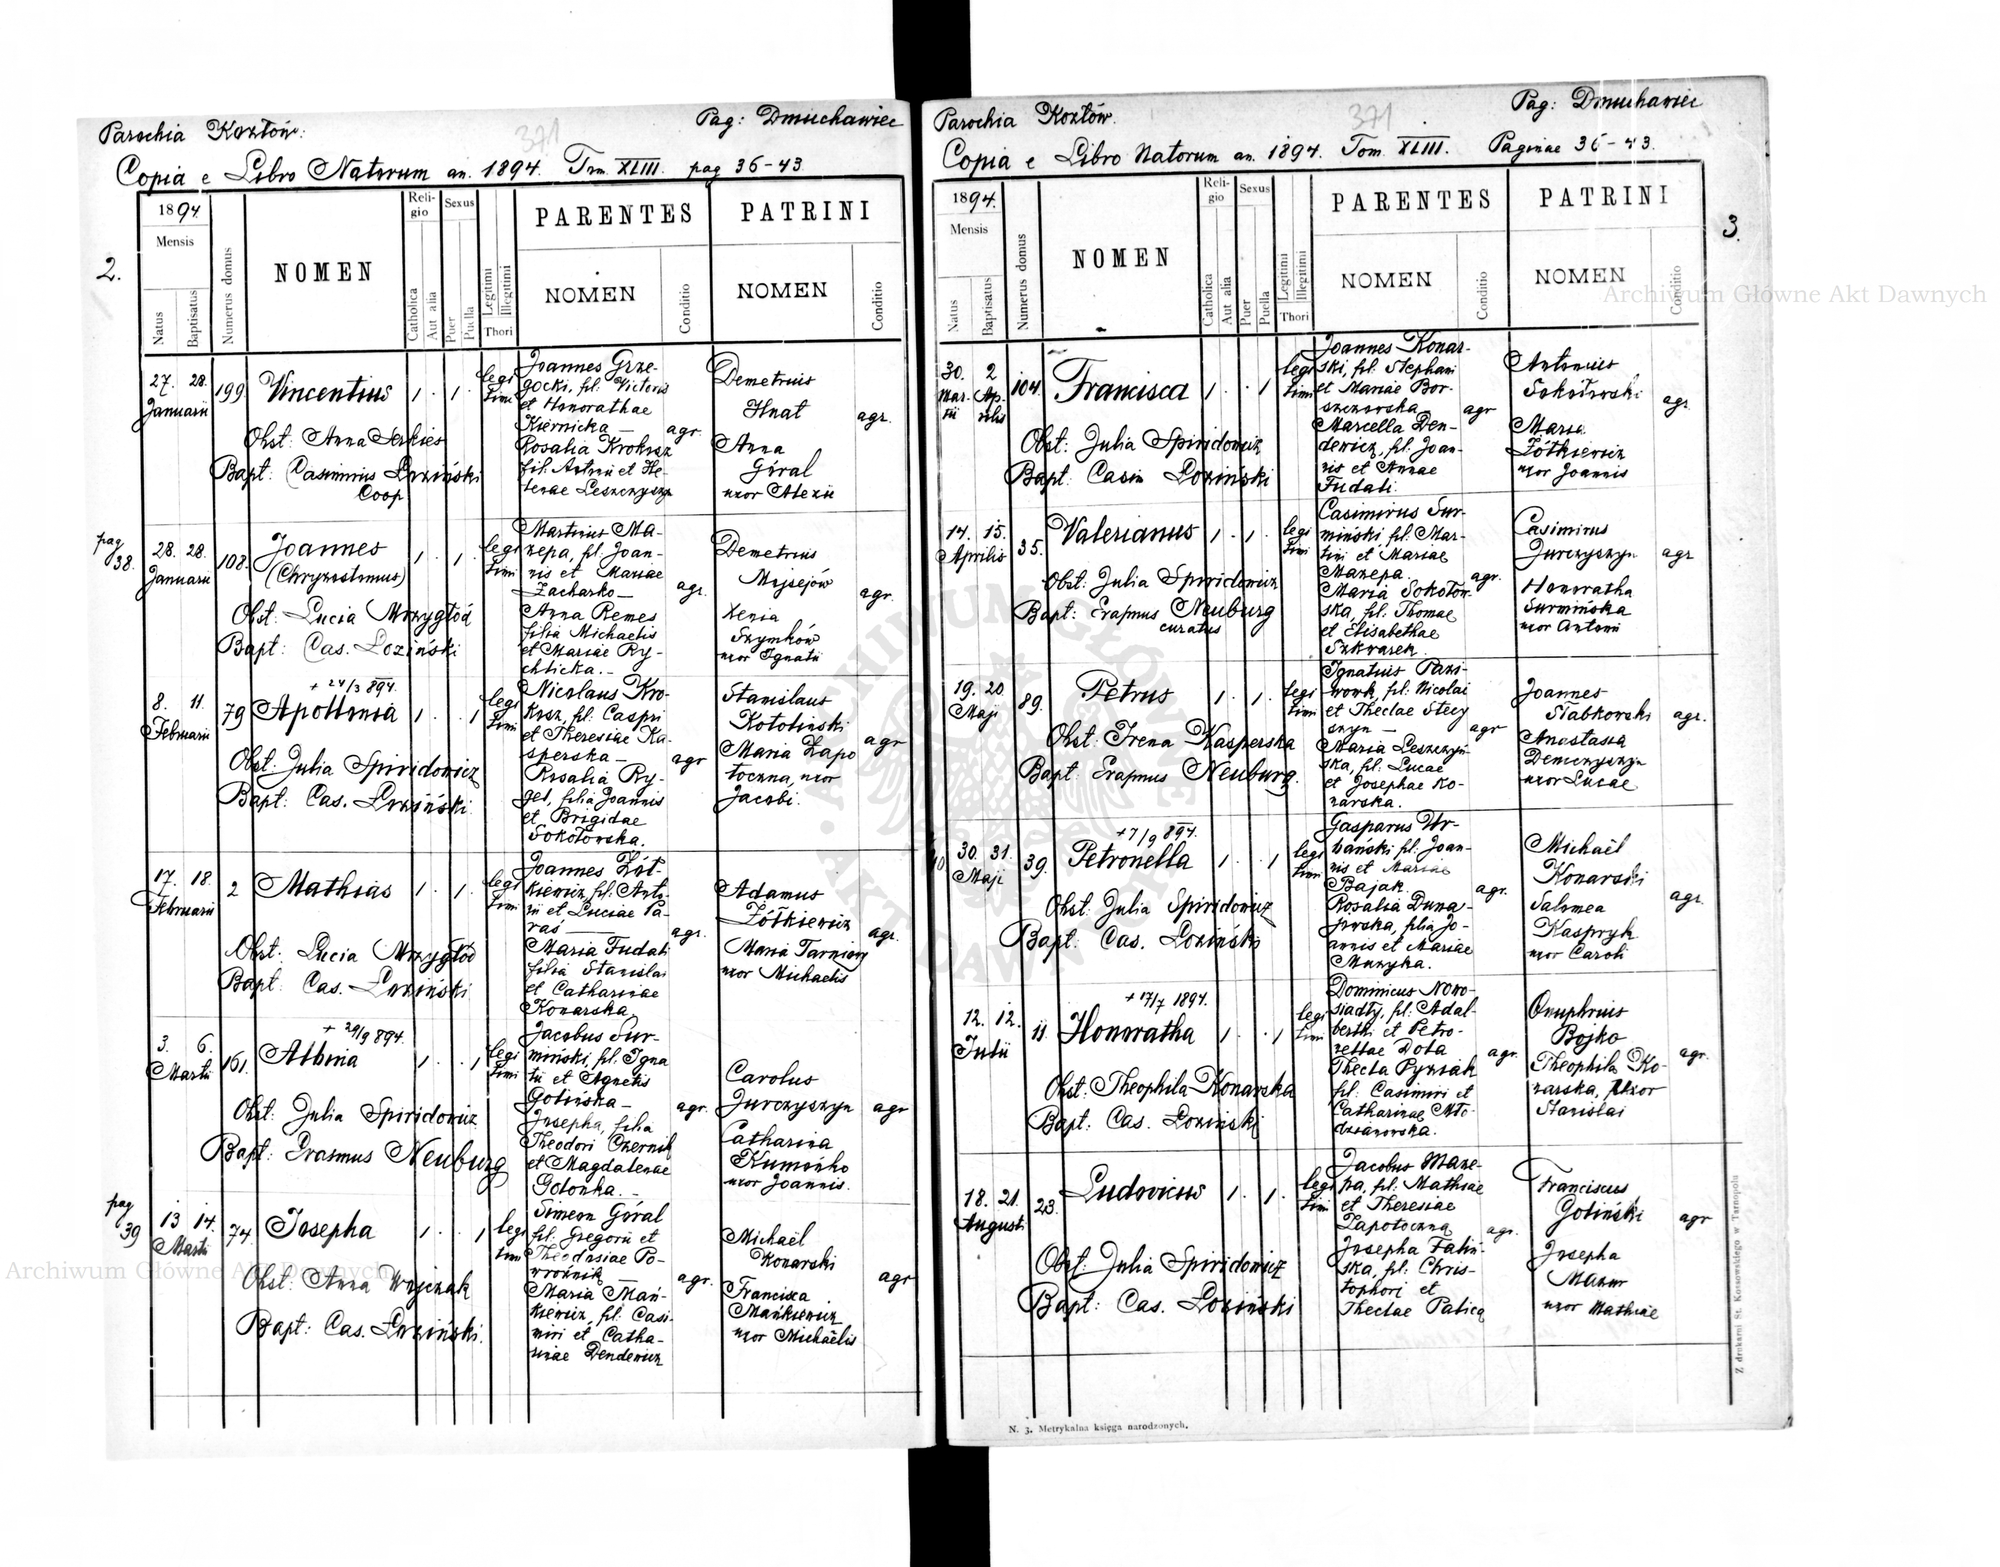 Parochia Kozłów:
371
Pag: Dmuchawiec
Copia e Libro Natorum an. 1894. Tom. XLIII. pag 36-43
2.
1894
Mensis
Natus
Baptisatus
Numerus domus
NOMEN
Reli-
gio
Catholica
Aut alia
Sexus
Puer
Puella
Legitimi
Illegitimi
Thori
PARENTES
NOMEN
Conditio
PATRINI
NOMEN
Conditio
27. 28.
Januarii
199
Vincentius
1 . 1 .
legi
timi
Obst: Anna Serkies
Bapt: Casimirus Łoziński
Coop
Joannes Grze-
gocki, fil. Victoris
et Honorathae
Kiernicka —
Rosalia Krokosz
fil: Antonii et He-
lenae Leszczyszyn
agr.
Demetrius
Hnat
Anna
Góral
uxor Alexii
agr.
pag
38.
28. 28.
Januarii
108.
Joannes
(Chryzostomus)
1 . 1 .
legi
timi
Obst: Lucia Mrzygłód
Bapt: Cas. Łoziński
Martinus Ma-
zepa, fil. Joan-
nis et Mariae
Zacharko —
Anna Remes
filia Michaelis
et Mariae Ry-
chlicka. —
agr.
Demetrius
Mojsejów
Xenia
Szymków
uxor Ignatii
agr.
+ 24/3 894.
8. 11.
Februarii
79
Apollonia
1 . . 1
legi
timi
Obst: Julia Spiridowicz
Bapt: Cas. Łoziński
Nicolaus Kro-
kosz, fil: Caspri
et Theresiae Ka-
sperska —
Rosalia Ry-
gel, filia Joannis
et Brigidae
Sokołowska.
agr
Stanislaus
Kotoliński
Maria Zapo
toczna, uxor
Jacobi.
agr
17. 18.
Februarii
2
Mathias
1 . 1 .
legi
timi
Obst: Lucia Mrzygłód
Bapt: Cas. Łoziński
Joannes Żół-
kiewicz, fil. Anto
nii et Luciae Ta-
ras —
Maria Fudali
filia Stanislai
et Catharinae
Konarska
agr.
Adamus
Żółkiewicz
Maria Tarniowy
uxor Michaelis
agr.
+ 29/9 894.
3. 6.
Martii
161.
Albina
1 . . 1
legi
timi
Obst: Julia Spiridowicz
Bapt: Erasmus Neuburg
Jacobus Sur-
miński, fil. Igna
tii et Agnetis
Golińska —
Josepha, filia
Theodori Czernik
et Magdalenae
Golonka. —
agr.
Carolus
Jurczyszyn
Catharina
Kumońko
uxor Joannis.
agr
pag
39
13 14.
Martii
74
Josepha
1 . . 1
legi
timi
Obst: Anna Wojczak
Bapt: Cas. Łoziński.
Simeon Góral
fil: Gregorii et
Theodosiae Po-
wroźnik —
Maria Mań-
kiewicz, fil: Casi-
miri et Catha-
rinae Dendewicz
agr.
Michaël
Konarski
Francisca
Mańkiewicz
uxor Michaëlis
agr
Parochia Kozłów.
371
Pag: Dmuchawiec
Copia e Libro Natorum an. 1894. Tom. XLIII. Paginae 36-43.
3.
1894.
Mensis
Natus
Baptisatus
Numerus domus
NOMEN
Reli-
gio
Catholica
Aut alia
Sexus
Puer
Puella
Legitimi
Illegitimi
Thori
PARENTES
NOMEN
Conditio
PATRINI
NOMEN
Conditio
30. 2
Mar- Ap-
tii rilis
104.
Francisca
1 . . 1
legi
timi
Obst: Julia Spiridowicz
Bapt: Casim Łoziński
Joannes Konar-
ski, fil. Stephani
et Mariae Bor-
szczowska
Marcella Den-
dewicz, fil: Joan-
nis et Annae
Fudali.
agr
Antonius
Sokołowski
Maria
Żółkiewicz
uxor Joannis
agr.
14. 15.
Aprilis
35.
Valerianus
1 . 1 .
legi
timi
Obst: Julia Spiridowicz
Bapt: Erapmus Neuburg
curatus
Casimirus Sur-
miński, fil: Mar-
tini et Mariae
Mazepa.
Maria Sokołow-
ska, fil: Thomae
et Elisabethae
Szkwarek.
agr.
Casimirus
Jurczyszyn
Honoratha
Surmińska
uxor Antonii
agr
19. 20.
Maji
89.
Petrus
1 . 1 .
legi
timi
Obst: Irena Kasperska
Bapt: Erapmus Neuburg.
Ignatius Parsi-
wowk, fil: Nicolai
et Theclae Stecy
szyn —
Maria Leszczyń
ska, fil: Lucae
et Josephae Ko-
narska.
agr
Joannes
Słabkowski
Anastasia
Demczyszyn
uxor Lucae
agr.
+7/9 894.
40
30. 31.
Maji
39.
Petronella
1 . . 1
legi
timi
Obst: Julia Spiridowicz
Bapt: Cas. Łoziński
Gasparus Ur-
bański fil: Joan-
nis et Mariae
Bajak.
Rosalia Duna-
jewska, filia Jo-
annis et Mariae
Muzyka.
agr.
Michaël
Konarski
Salomea
Kaspryk
uxor Caroli
agr.
+ 17/7 1894.
12. 12.
Julii
11
Honoratha
1 . . 1
legi
timi
Obst: Theophila Konarska
Bapt: Cas. Łoziński
Dominicus Nowo-
siadły, fil: Adal-
berthi et Petro-
nellae Dola
Thecla Pyziak
fil: Casimiri et
Catharinae Mło-
dzianowska.
agr.
Onuphrius
Bojko
Theophila Ko-
narska, uxor
Stanislai
agr.
18. 21.
Augusti
23.
Ludovicus
1 . 1 .
legi
timi
Obst: Julia Spiridowicz
Bapt: Cas. Łoziński
Jacobus Maze-
pa, fil: Mathiae
et Theresiae
Zapotoczna
Josepha Faliń-
ska, fil: Chris-
tophori et
Theclae Palica
agr.
Franciscus
Goliński
Josepha
Mazur
uxor Mathiae
agr
N. 3. Metrykalna księga narodzonych.
Z drukarni St. Kossowskiego w Tarnopolu
Archiwum Główne Akt Dawnych
Archiwum Główne Akt Dawnych
ARCHIWUM GŁÓWNE AKT DAWNYCH